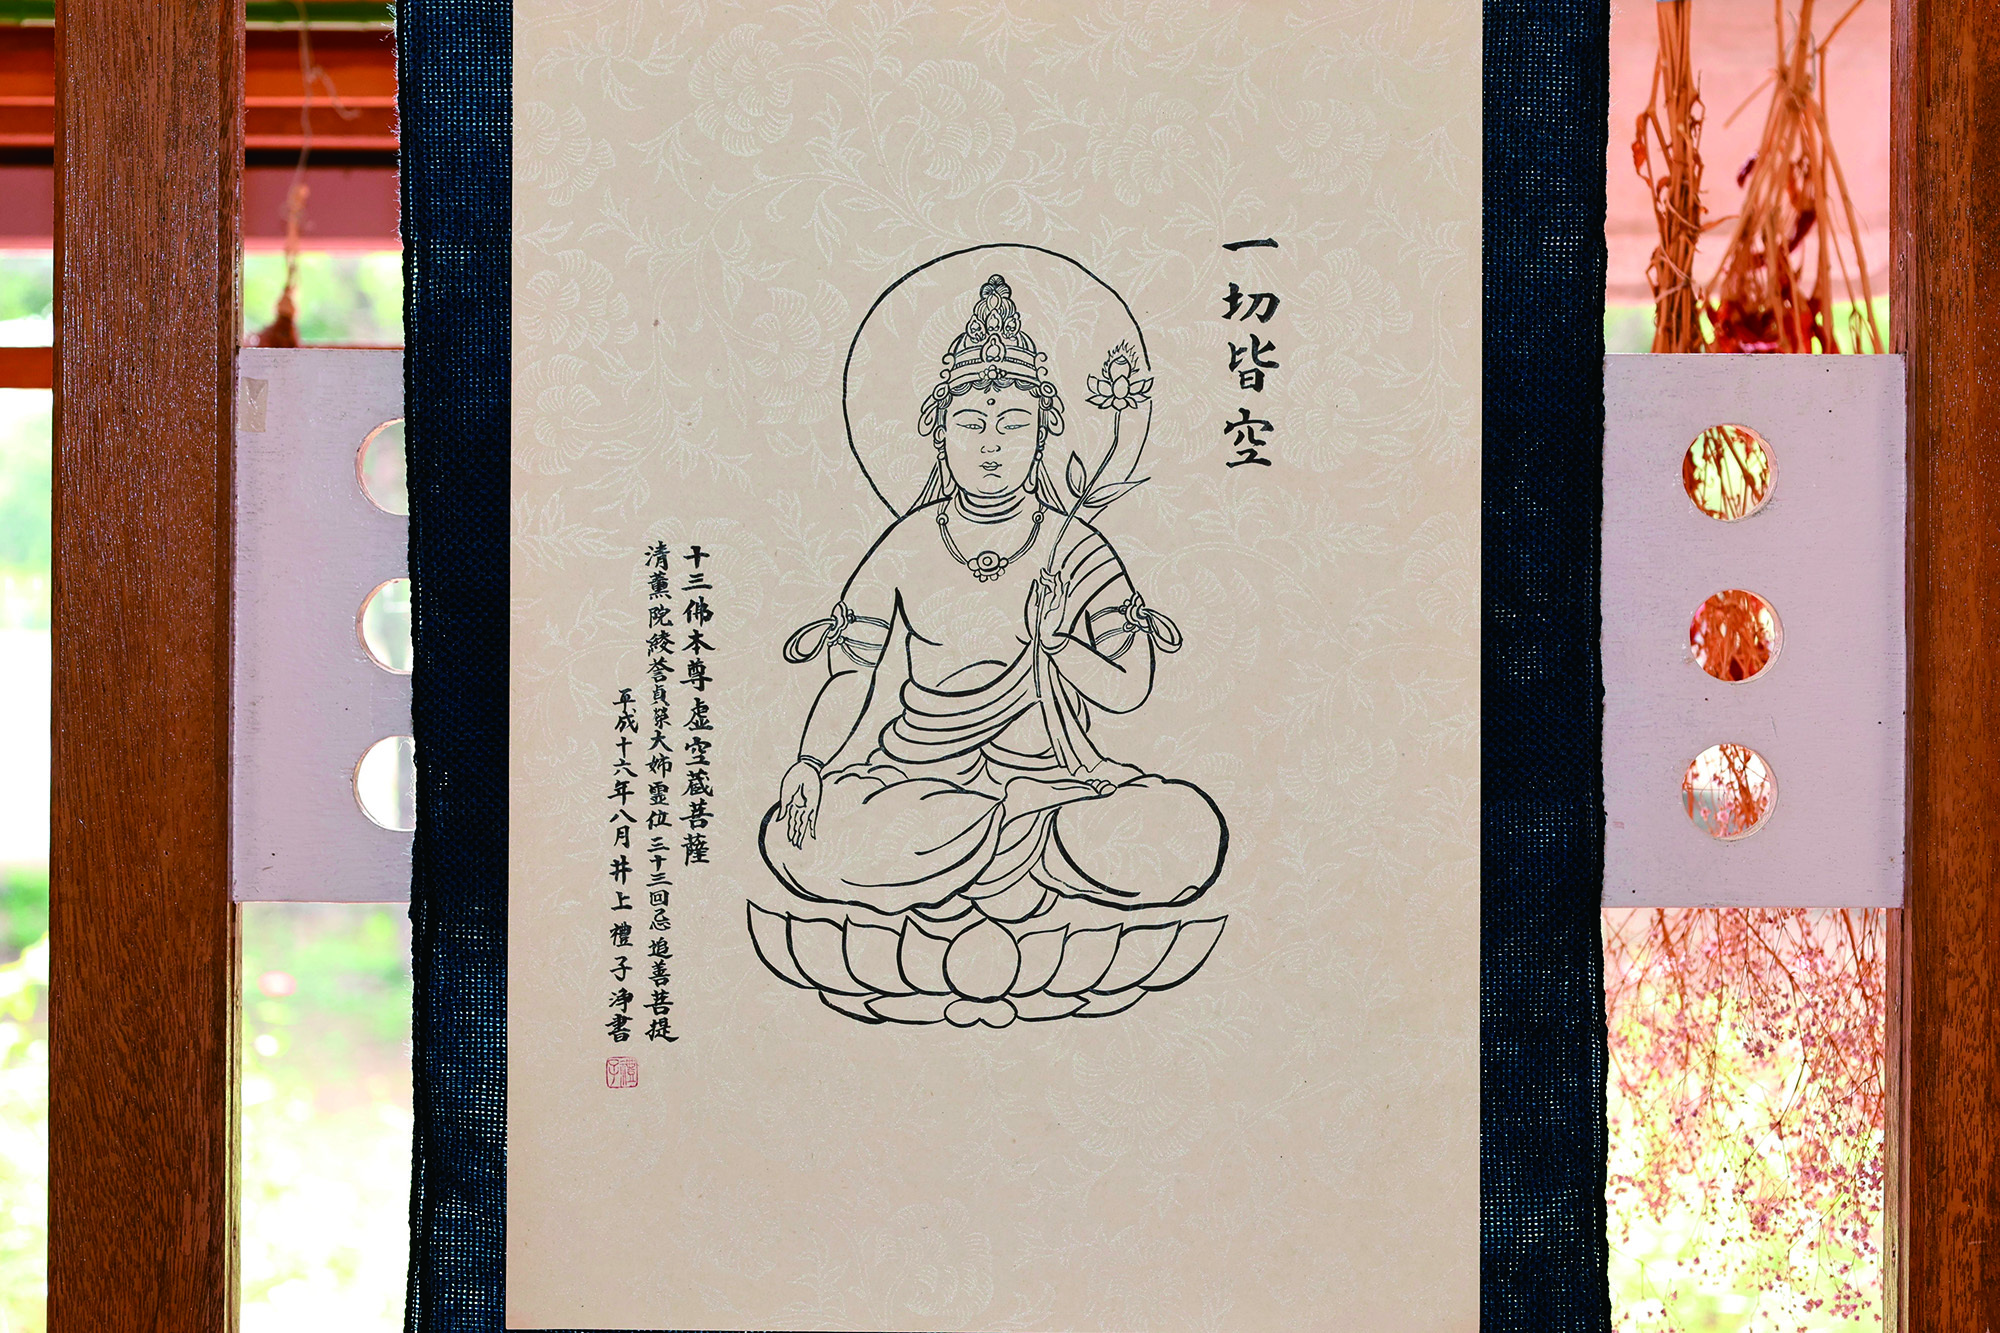 一切皆空
十三佛本尊虚空蔵菩薩
清薫院綾誉貞榮大姉霊位三十三回忌追善菩提
平成十六年八月井上禮子浄書
禮子